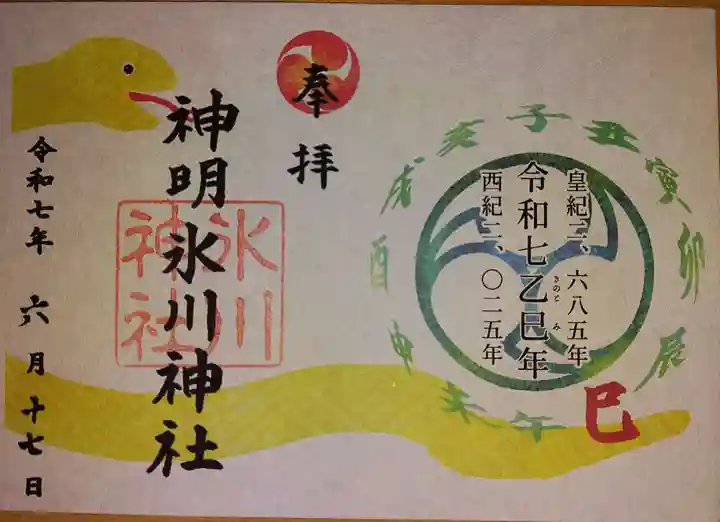 皇紀二、六八五年
令和七乙巳年
きのと み
西紀二、〇二五年
子
丑
寅
卯
辰
巳
午
未
申
酉
戌
亥
奉拝
神明氷川神社
氷川
神社
令和七年 六月十七日